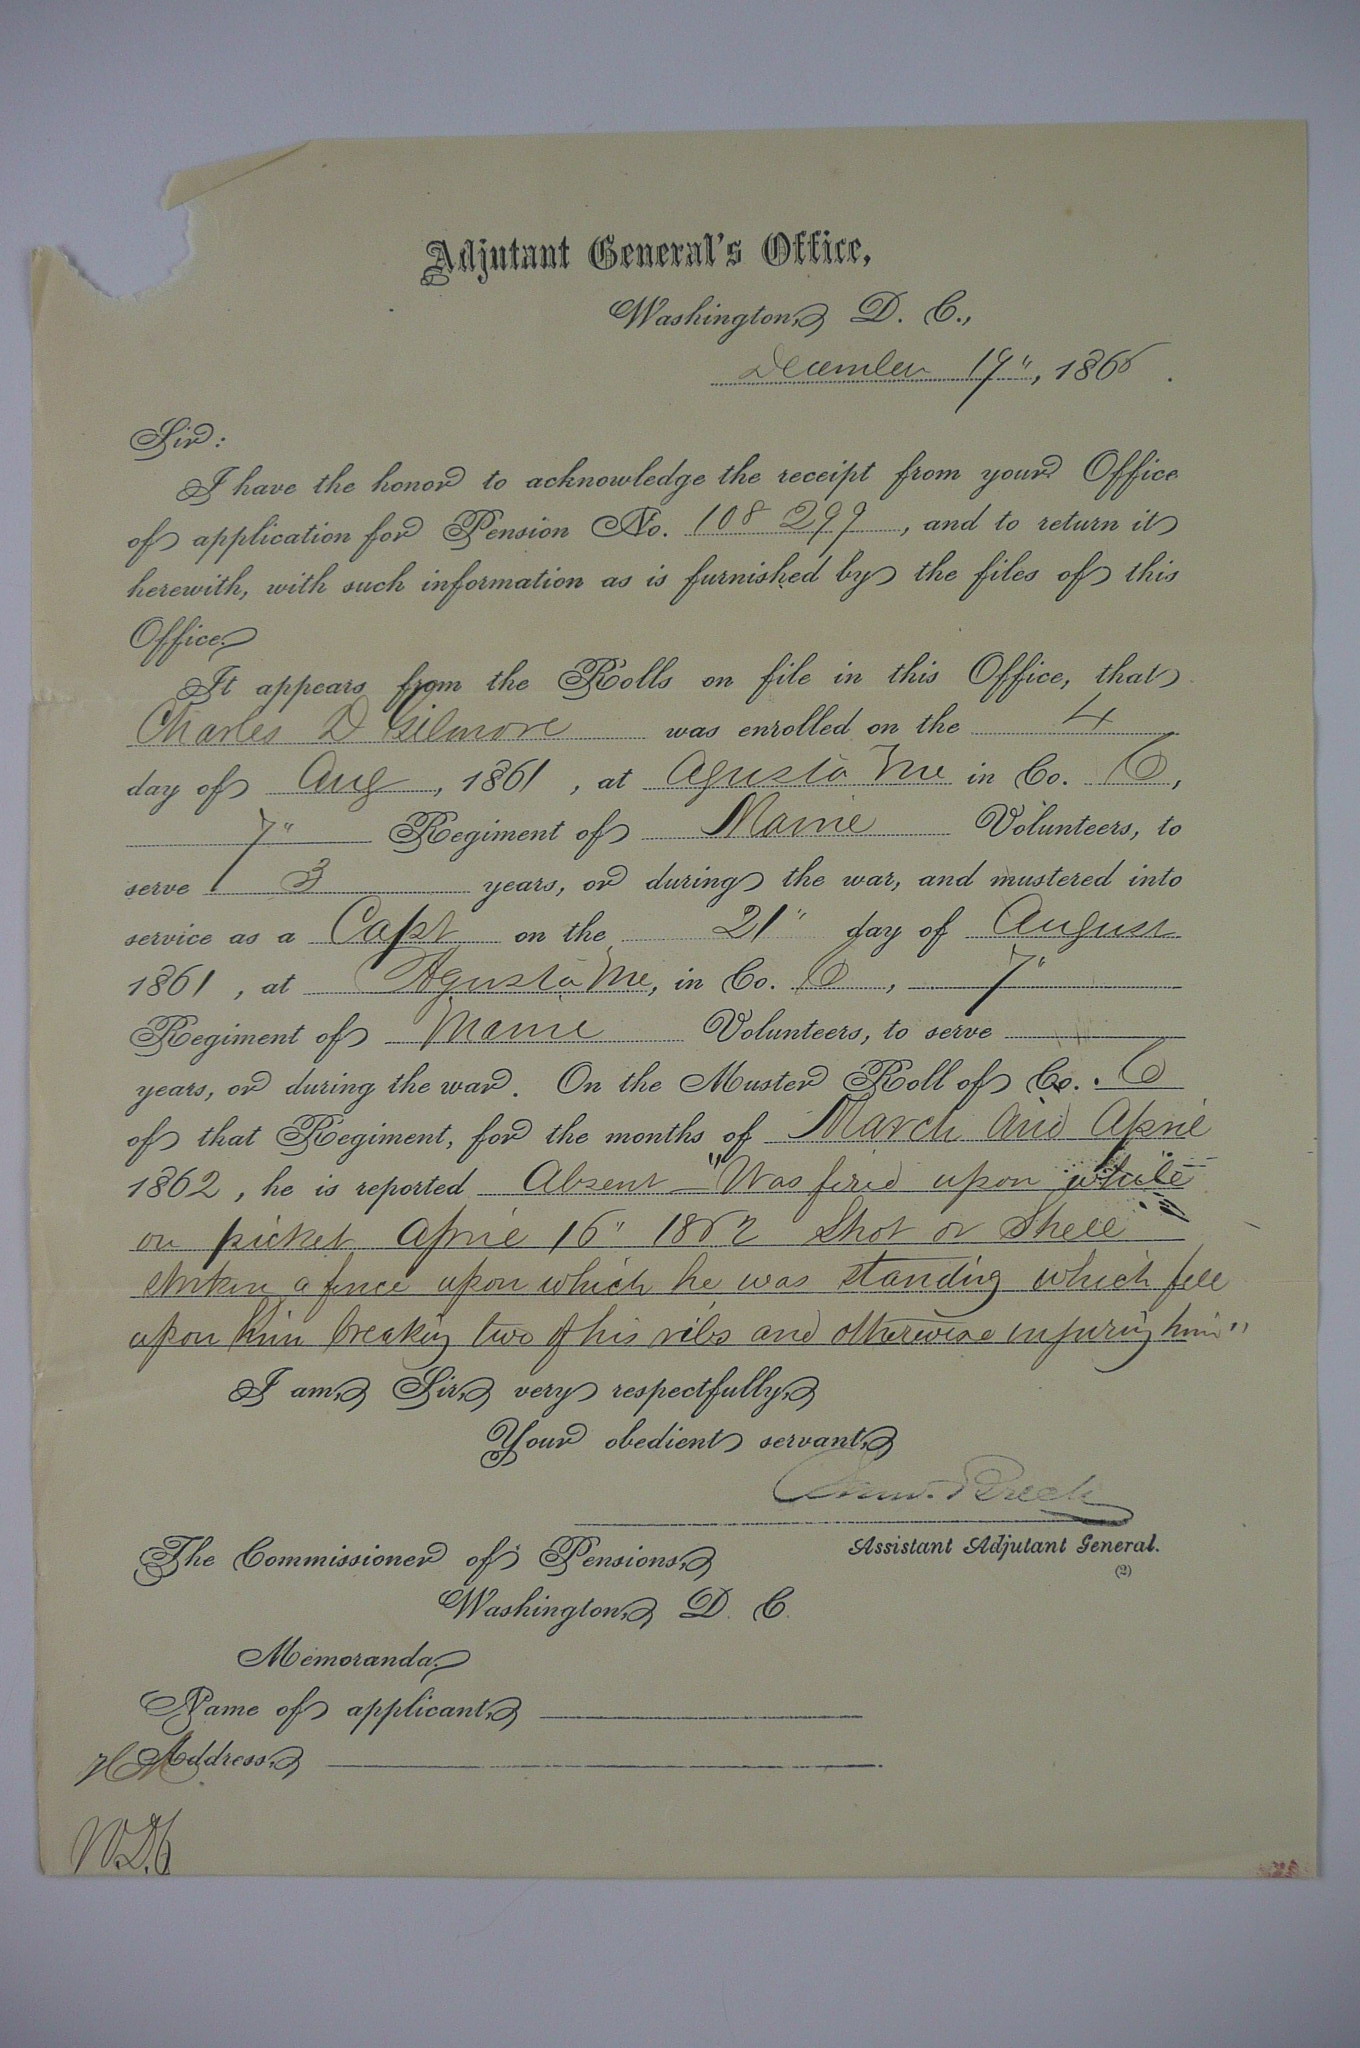 Adjutant General's Office,
Washington, D. C.,
December 19", 1866.
Sir:
I have the honor to acknowledge the receipt from your Office
of application for Pension No. 108 299, and to return it
herewith, with such information as is furnished by the files of this
Office.
It appears from the Rolls on file in this Office, that
Charles D Gilmore was enrolled on the 4
day of Aug, 1861, at Agusta Me in Co. C,
7" Regiment of Maine Volunteers, to
serve 3 years, or during the war, and mustered into
service as a Capt on the 21" day of August
1861, at Agusta Me, in Co. C, 7"
Regiment of Maine Volunteers, to serve
years, or during the war. On the Muster Roll of Co. C
of that Regiment, for the months of March and April
1862, he is reported Absent - "Was fired upon while
on picket April 16" 1862 Shot or Shell
a fence upon which he was standing which fell
upon him breaking two of his ribs and otherwise injuring him"
I am, Sir, very respectfully,
Your obedient servant,
Breck
Assistant Adjutant General.
(2)
The Commissioner of Pensions,
Washington, D. C.
Memoranda.
Name of applicant,
Address,